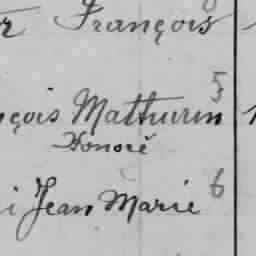 François
5
nçois Mathurin
Honoré
i Jean Marie 6